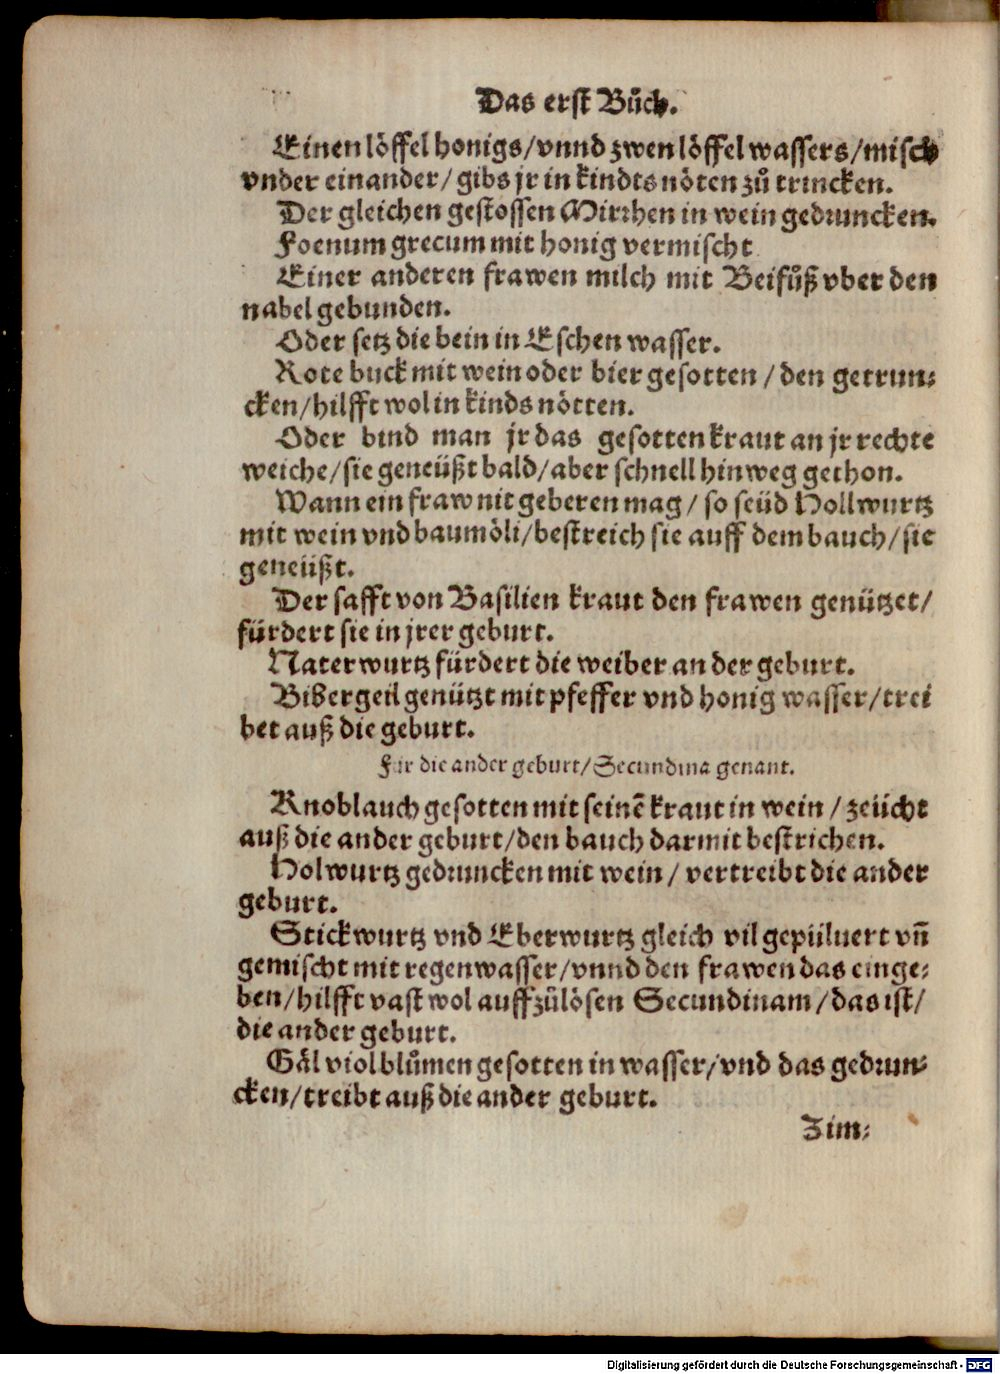 Das erst Bůch.
Einen löffel honigs/vnnd zwen löffel wassers/misch
vnder einander/gibs jr in kindts nöten zů trincken.
Der gleichen gestossen Mirrhen in wein gedruncken.
Foenum grecum mit honig vermischt
Einer anderen frawen milch mit Beifůß vber den
nabel gebunden.
Oder setz die bein in Eschen wasser.
Rote buck mit wein oder bier gesotten/den getrun⸗
cken/hilfft wol in kinds nötten.
Oder bind man jr das gesotten kraut an jr rechte
weiche/sie geneüßt bald/aber schnell hinweg gethon.
Wann ein fraw nit geberen mag/so seüd Hollwurtz
mit wein vnd baumöli/bestreich sie auff dem bauch/sie
geneüßt.
Der safft von Basilien kraut den frawen genützet/
fürdert sie in jrer geburt.
Naterwurtz fürdert die weiber an der geburt.
Bibergeil genützt mit pfeffer vnd honig wasser/trei
bet auß die geburt.
Für die ander geburt/Secundina genant.
Knoblauch gesotten mit seinē kraut in wein/zeücht
auß die ander geburt/den bauch darmit bestrichen.
Holwurtz gedruncken mit wein/vertreibt die ander
geburt.
Stickwurtz vnd Eberwurtz gleich vil gepüluert vn̄
gemischt mit regenwasser/vnnd den frawen das einge⸗
ben/hilfft vast wol auffzůlösen Secundinam/das ist/
die ander geburt.
Gäl violblůmen gesotten in wasser/vnd das gedrun⸗
cken/treibt auß die ander geburt.
Zim⸗
Digitalisierung gefördert durch die Deutsche Forschungsgemeinschaft - DFG